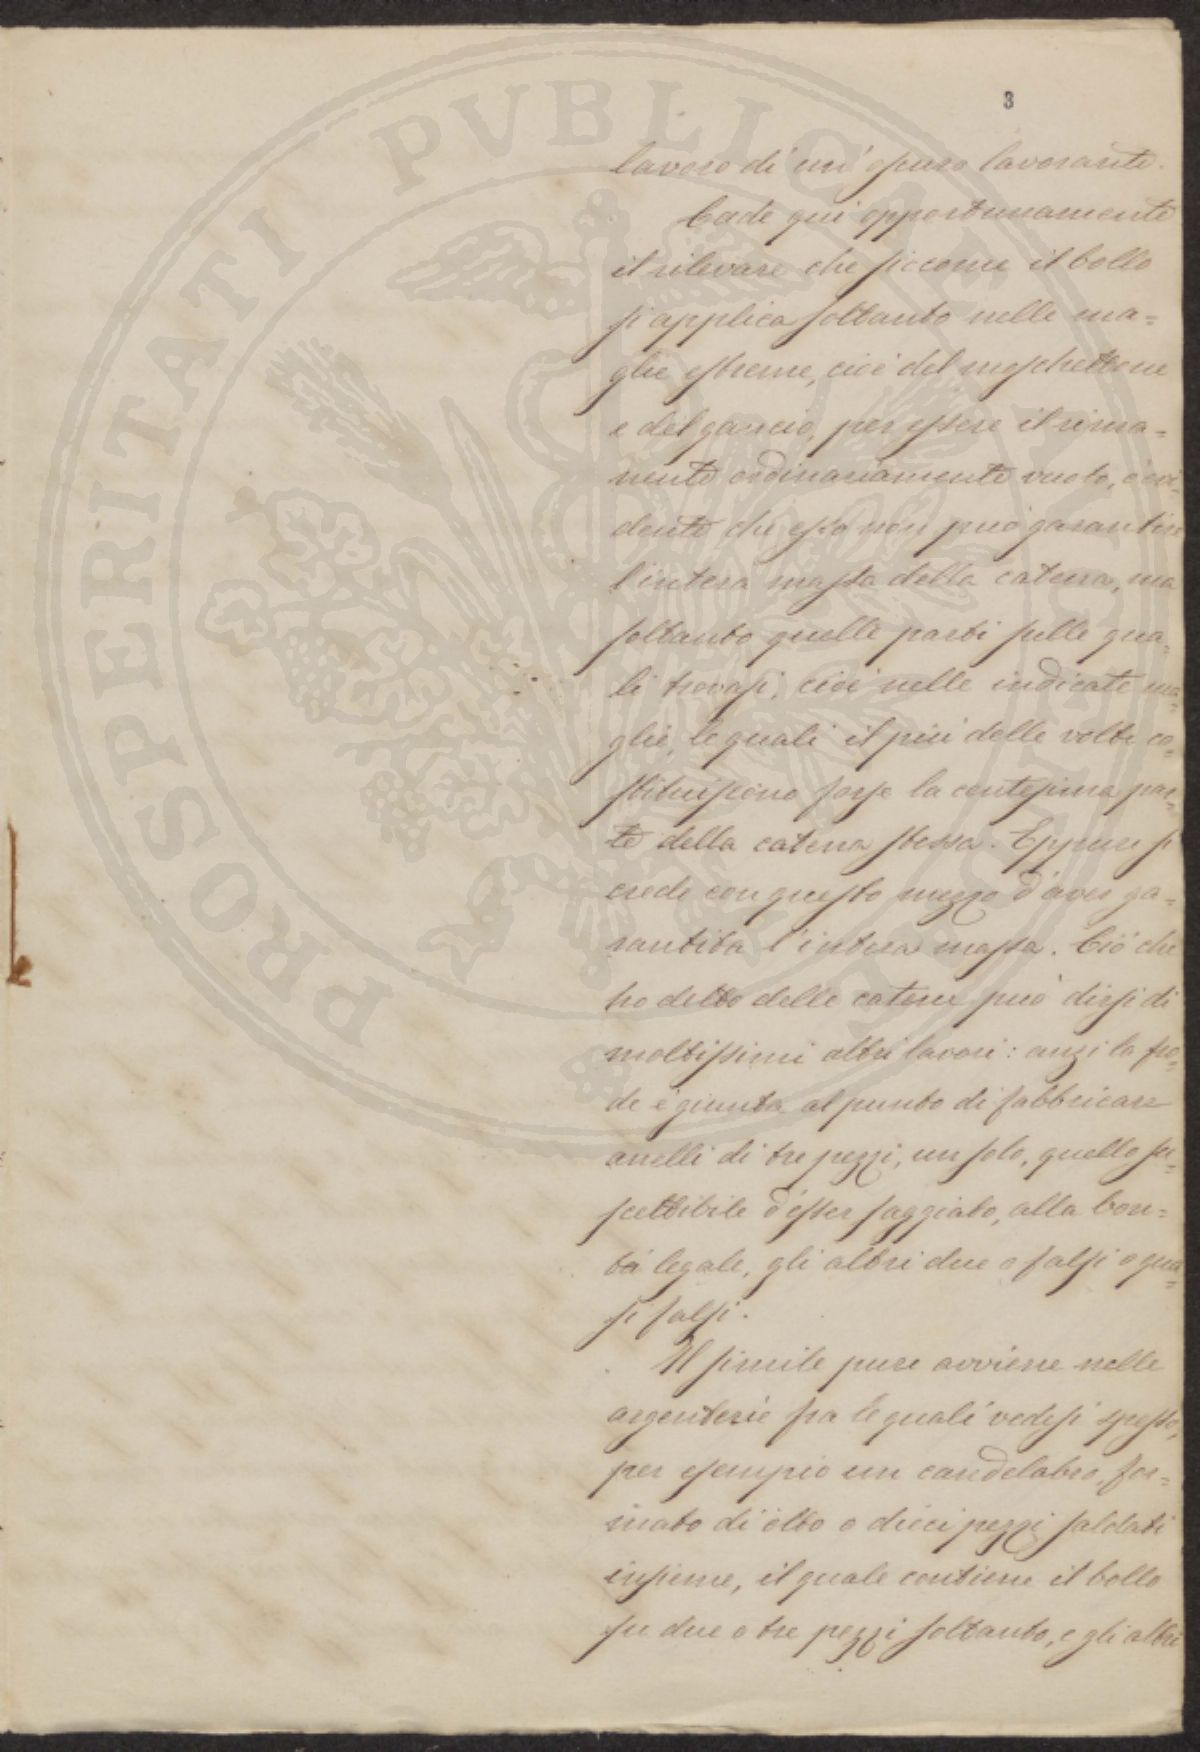 3
lavoro di un' operoso lavorante.
Cade qui opportunamente
il rilevare che siccome il bollo
si applica soltanto nelle ma=
glie estreme, cioè del moschettone
e del gancio, per essere il rima=
nente ordinariamente vuoto, è evi=
dente che esso non può garantire
l'intera massa della catena, ma
soltanto quelle parti sulle qua=
li trovasi, cioè nelle indicate ma=
glie, le quali il più delle volte co=
stituiscono forse la centesima par=
te della catena stessa. Eppure si
crede con questo mezzo d'aver ga=
rantita l'intera massa. Ciò che
ho detto delle catene può dirsi di
moltissimi altri lavori: anzi la fro=
de è giunta al punto di fabbricare
anelli di tre pezzi, un solo, quello su=
scettibile d'esser saggiato, alla bon=
tà legale, gli altri due o falsi o qua=
si falsi.
Il simile pure avviene nelle
argenterie fra le quali vedesi spesso,
per esempio un candelabro, for=
mato di otto o dieci pezzi saldati
insieme, il quale contiene il bollo
su due o tre pezzi soltanto, e gli altri
PROSPERITATI PVBLICAE